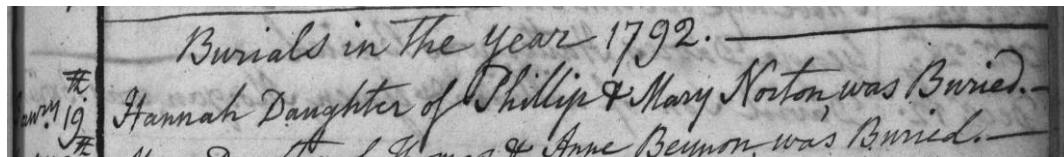 Burials in the Year 1792.
Jawry 19th Hannah Daughter of Phillip & Mary Norton, was Buried.
Daughter of Thomas & Anne Beynon, was Buried.